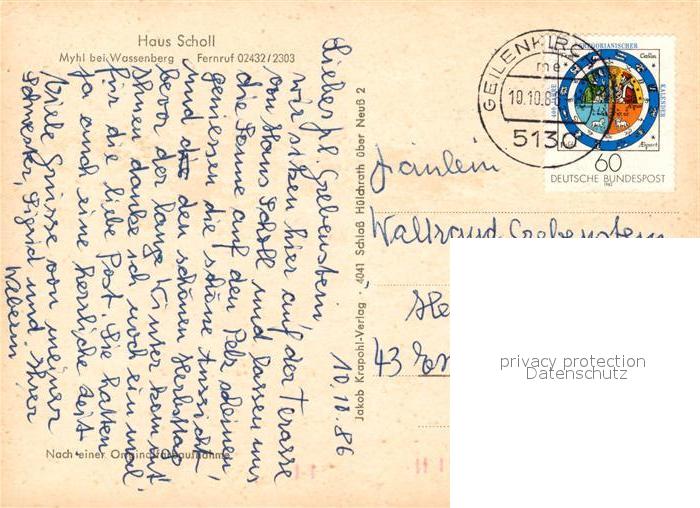 Haus Scholl
Myhl bei Wassenberg Fernruf 02432/2303
10.10.86
Liebes Frl. Grebenstein,
wir sitzen hier auf der Terasse
von Haus Scholl und lassen uns
die Sonne auf den Pelz scheinen,
geniessen die schöne Aussicht
und den schönen Herbsttag
bevor der lange Winter kommt
Ihnen danke ich noch ein mal
für die liebe Post. Sie hatten
ja auch eine herrliche Zeit.
Viele Grüsse von meiner
Schwester, Sigrid und Ihrer
Nach einer Originalfarbaufnahme
Jakob Krapohl-Verlag · 4041 Schloß Hülchrath über Neuß 2
GEILENKIRC
10.10.86
5130
GREGORIANISCHER
KALENDER
400 JAHRE
60
DEUTSCHE BUNDESPOST
1982
Fräulein
Waltraud Grebenstein
43
privacy protection
Datenschutz